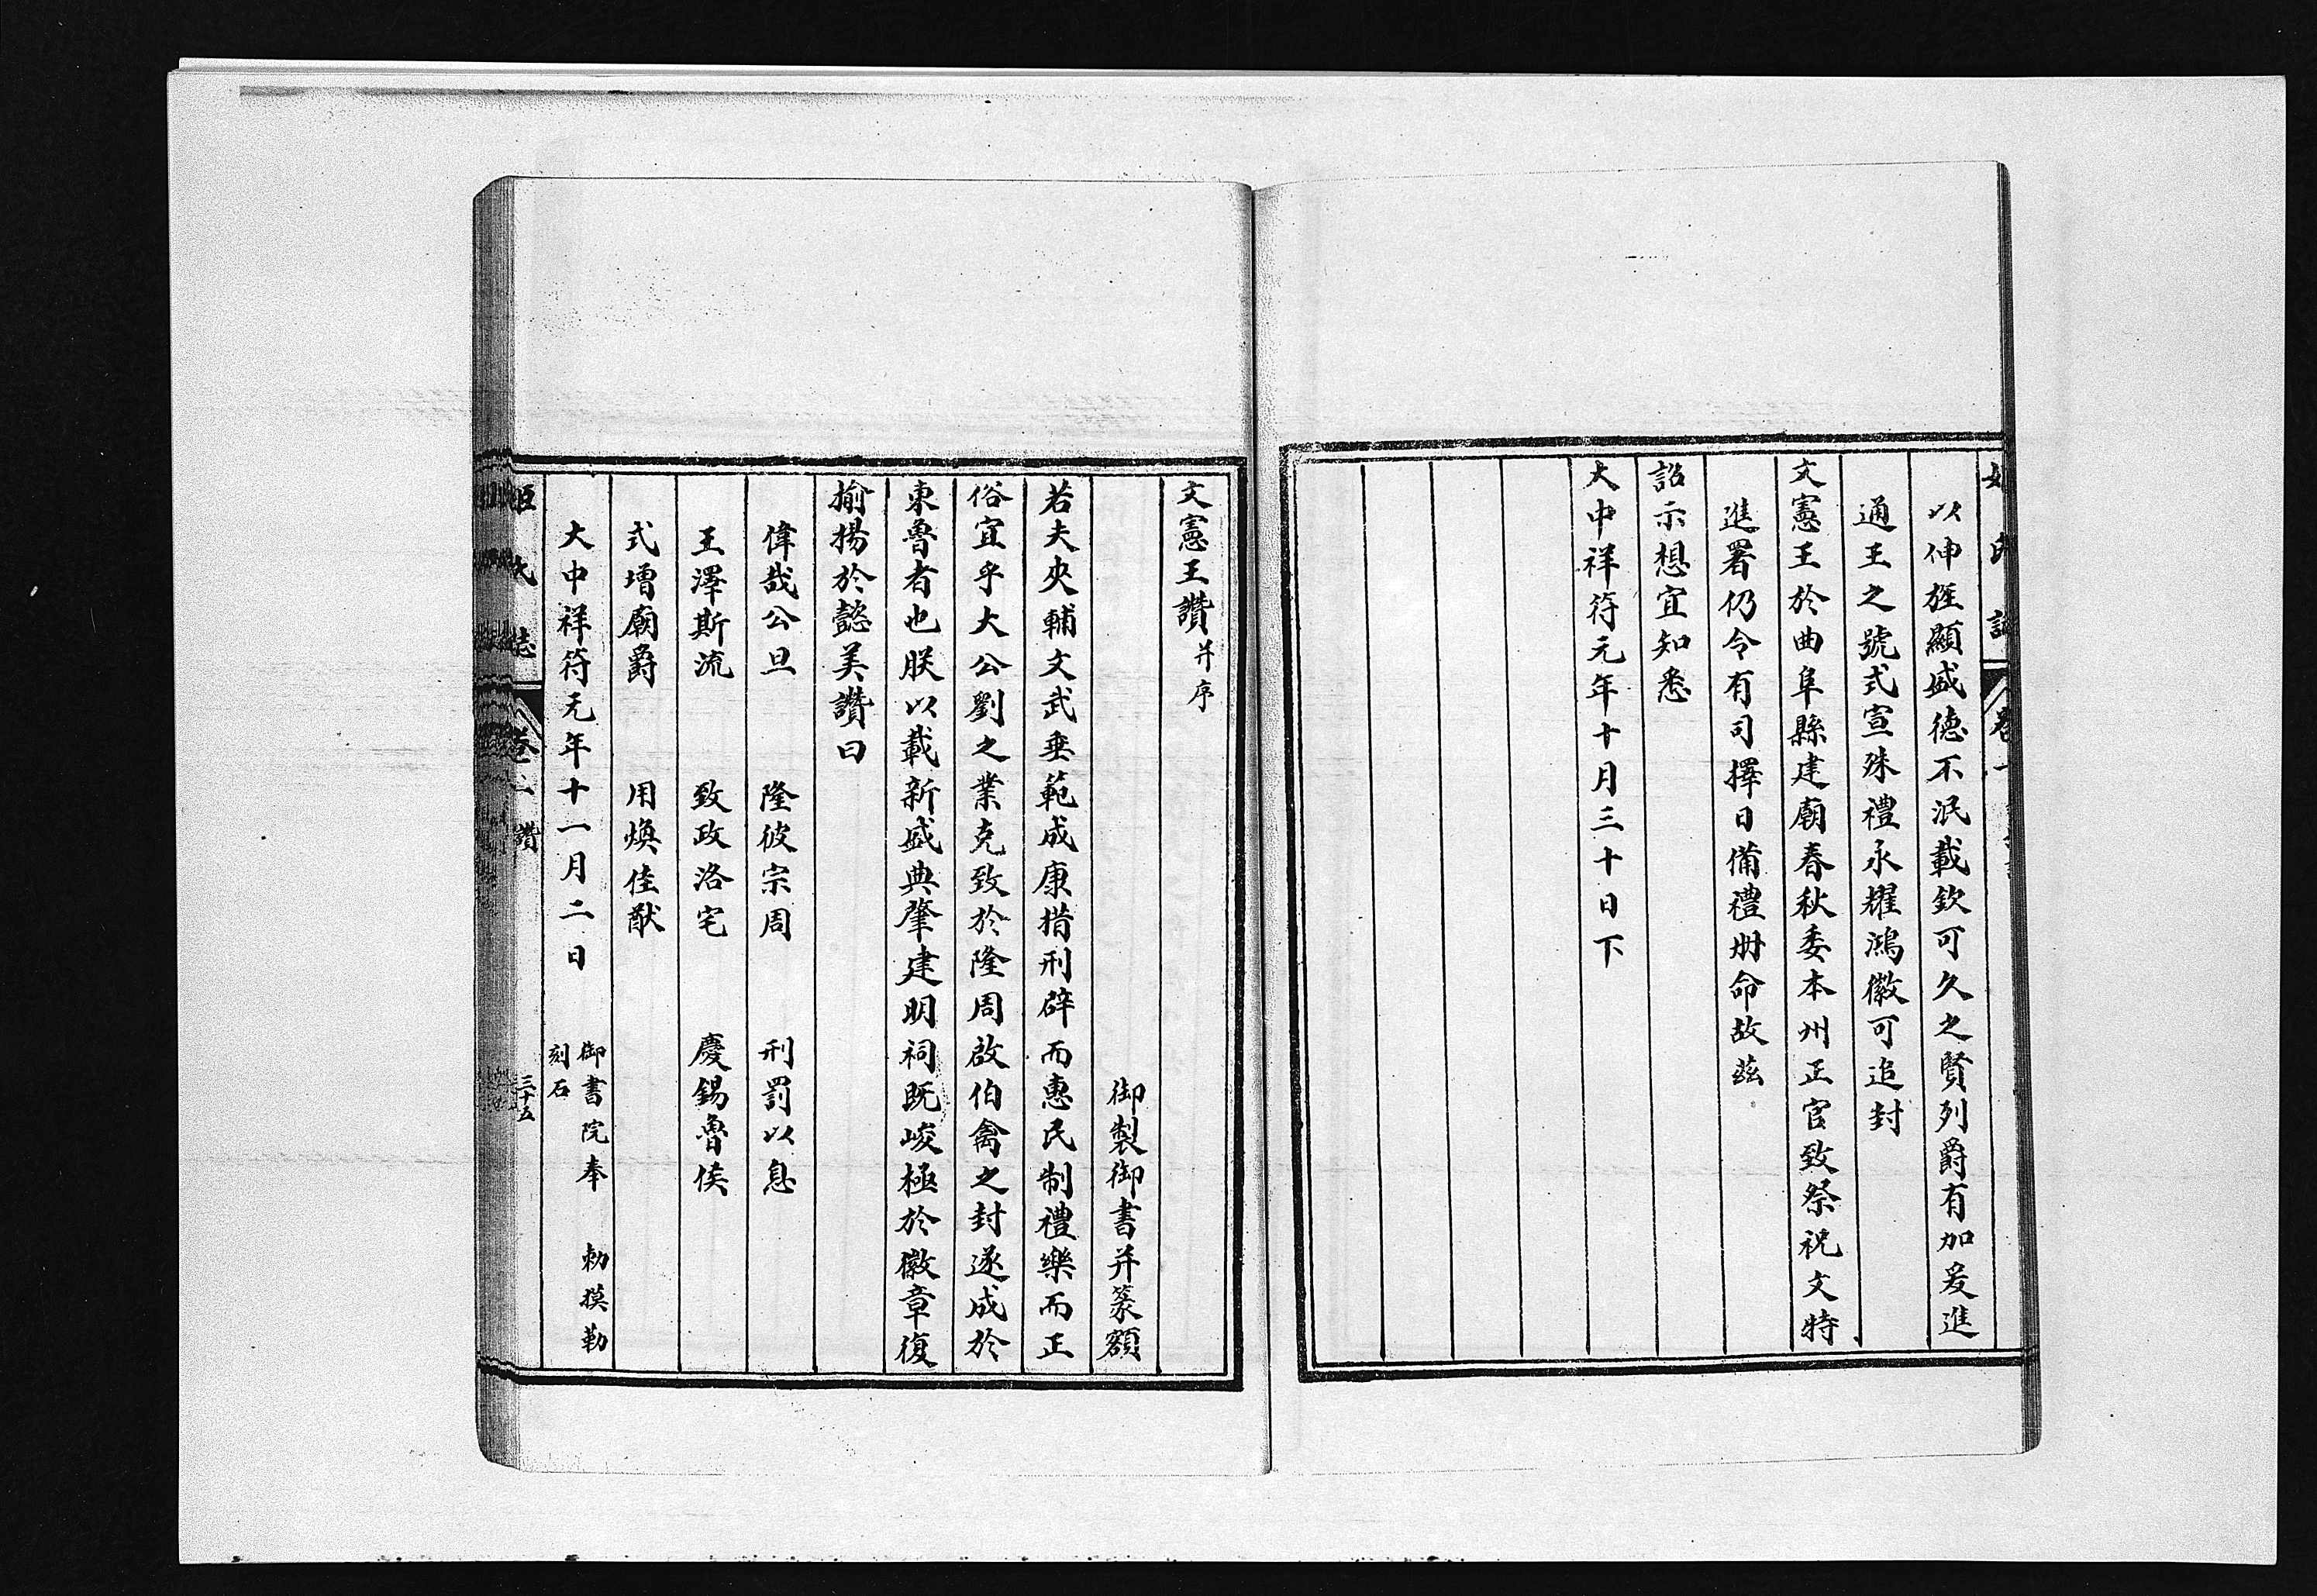 姬氏誌 卷一
以伸旌顯盛德不泯載欽可久之賢列爵有加爰進
通王之號式宣殊禮永耀鴻徽可追封
文憲王於曲阜縣建廟春秋委本州正官致祭祝文特
進署仍令有司擇日備禮册命故茲
詔示想宜知悉
大中祥符元年十月三十日下
文憲王讚并序
御製御書并篆額
若夫夾輔文武垂範成康措刑辟而惠民制禮樂而正
俗宜乎大公劉之業克致於隆周啟伯禽之封遂成於
東魯者也朕以載新盛典肇建明祠既峻極於徽章復
揄揚於懿美讚曰
偉哉公旦 隆彼宗周 刑罰以息
王澤斯流 致政洛宅 慶錫魯侯
式增廟爵 用煥佳猷
大中祥符元年十一月二日 御書院奉 勅摸勒
刻石
姬氏誌 卷一 讚 三十五